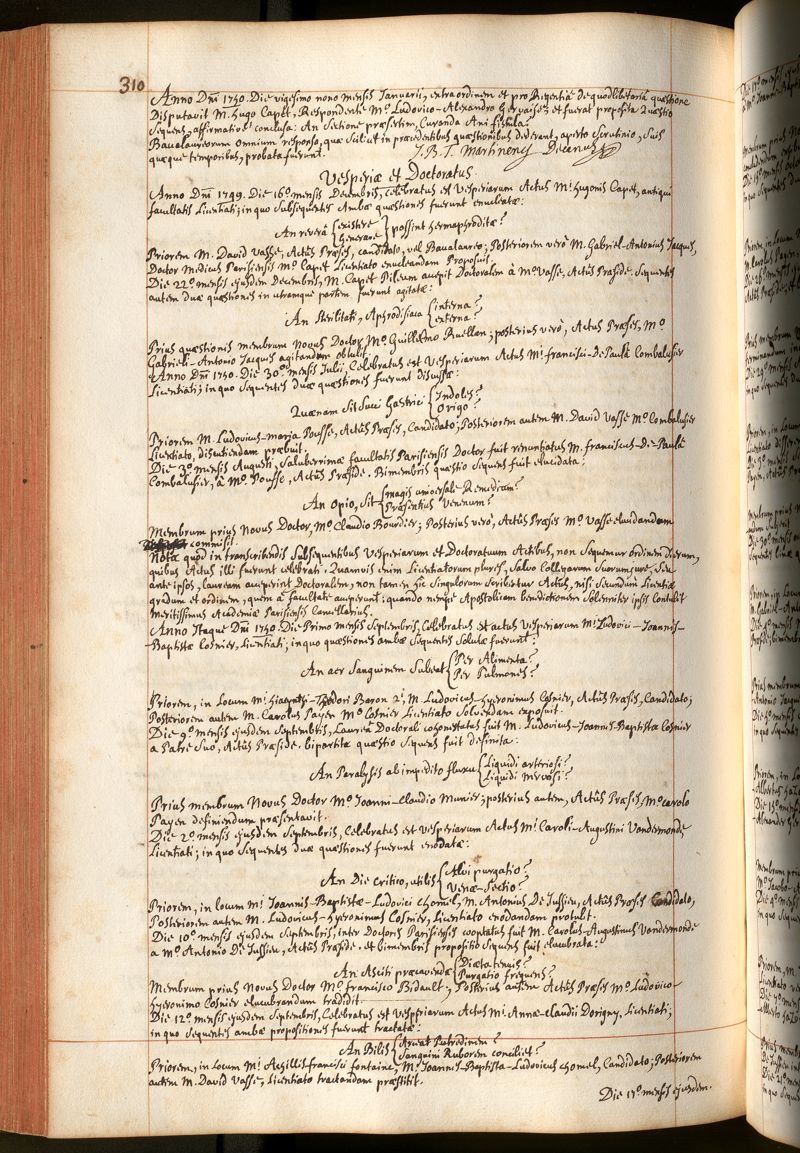 310
Anno Dni 1750. Die vigesimo nono mensis Januarii, extra ordinem et pro Regentia de quodlibetaria quæstione
Disputavit M. Hugo Capet, Respondente Mo. Ludovico-Alexandro Gervaise; et fuerat proposita Quæstio
Sequens, affirmative conclusa: An Sectione præsertim, Curanda Ani fistula?
Baccalaureorum omnium responso, quæ Sicut in præcedentibus quæstionibus dederant, aperto scrutinio, Suis
quæque temporibus, probata fuerunt.
J. B. T. Martinenq Decanus
Vesperiæ et Doctoratus.
Anno Dni 1749. Die 16o. mensis Decembris, Celebratus est Vesperiarum Actus Mi. Hugonis Capet, antiqui
facultatis Licentiati; in quo Subsequentes Ambæ quæstiones fuerunt enucleatæ:
An reverâ {existere / generare} possint hermaphroditæ?
Priorem M. David Vasse, Actûs Præses, candidato, vel Baccalaureo; Posteriorem verò M. Gabriel-Antonius Jacques,
Doctor Medicus Parisiensis Mo. Capet Licentiato enucleandam Proposuit.
Die 22o. mensis ejusdem Decembris, M. Capet Pileum accepit Doctoralem à Mo. Vasse, Actûs Præside. Sequentes
autem duæ quæstiones in utramque partem fuerunt agitatæ:
An Sterilitati, Aphrodisiaca {interna? / externa?
Prius quæstionis membrum Novus Doctor, Mo. Guillelmo Ruellan; posterius verò, Actus Præses, Mo.
Gabrieli-Antonio Jacques agitandum obtulit.
Anno Dni 1750. Die 30o. mensis Julii, Celebratus est Vesperiarum Actus Mi. francisci-De Paulâ Combalusier
Licentiati; in quo Sequentes duæ quæstiones fuerunt Discussæ:
Quænam Sit Succi Gastrici {Indoles? / Origo?
Priorem M. Ludovicus-maria Pousse, Actûs Præses, Candidato; Posteriorem autem M. David Vasse Mo. Combalusier
Licentiato, discutiendam præbuit.
Die 3o. mensis Augusti, Saluberrimæ facultatis Parisiensis Doctor fuit renuntiatus M. franciscus-De-Paulâ
Combalusier, à Mo. Pousse, Actûs Præside. Bimembris quæstio Sequens fuit elucidata:
An Opio, Sit {magis universale Remedium? / Præsentius Venenum?
Membrum prius Novus Doctor, Mo. Claudio Bourdier; Posterius verò, Actûs Præses Mo. Vasse elucidandum
commisit.
Nota quod in transcribendis Subsequentibus Vesperiarum et Doctoratuum Actibus, non Sequemur ordinem dierum,
quibus Actus illi fuerunt celebrati. Quamvis enim Licentiatorum plures, Salvo Collegarum Suorum jure, Seu
ante ipsos, lauream acceperint Doctoralem; non tamen hic Singulorum Scribetur Actus, nisi Secundum Licentiæ
gradum et ordinem, quem à facultate acceperunt: quando nempe Apostolicam benedictionem Solemniter ipsis Contulit
Meritissimus Academiæ Parisiensis Cancellarius.
Anno Itaque Dni 1750. Die Primo mensis Septembris, Celebratus est actus Vesperiarum Mi. Ludovici-Joannis-
Baptistæ Cosnier, Licentiati; in quo quæstiones ambæ Sequentes Solutæ fuerunt:
An aer Sanguinem Subeat {Per Alimenta? / Per Pulmones?
Priorem, in Locum Mi. Hiacynthi-Theodori Baron 2i, M. Ludovicus-hyeronimus Cosnier, Actûs Præses, Candidato;
Posteriorem autem M. Carolus Payen Mo. Cosnier Licentiato Solvendam exposuit.
Die 9o. mensis ejusdem Septembris, Laureâ Doctorali cohonestatus fuit M. Ludovicus-Joannes-Baptista Cosnier
a Patre Suo, Actûs Præside. bipartita quæstio Sequens fuit definita:
An Paralysis ab impedito fluxu {Liquidi arteriosi? / Liquidi nervosi?
Prius membrum Novus Doctor Mo. Joanni-Claudio Munier; posterius autem, Actûs Præses, Mo. carolo
Payen definiendum præsentavit.
Die 2o. mensis ejusdem Septembris, Celebratus est vesperiarum Actus Mi. Caroli-Augustini Vandermonde
Licentiati; in quo Sequentes duæ quæstiones fuerunt enodatæ:
An Die Critico, utilis {Alvi purgatio? / Venæ-Sectio?
Priorem, in locum Mi. Joannis-Baptistæ-Ludovici Chomel, M. Antonius De Jussieu, Actûs Præses Candidato,
Posteriorem autem M. Ludovicus-Hyeronimus Cosnier, Licentiato enodandam protulit.
Die 10o. mensis ejusdem Septembris, inter Doctores Parisienses cooptatus fuit M. Carolus-Augustinus Vandermonde
a Mo. Antonio De Jussieu, Actûs Præside. et bimembris propositio Sequens fuit elucubrata:
An Asciti præcavendæ {Diæta tenuis? / Purgatio frequens?
Membrum prius Novus Doctor Mo. francisco Bidault; Posterius autem Actûs Præses Mo. Ludovico-
hyeronimo Cosnier elucubrandum tradidit.
Die 12o. mensis ejusdem Septembris, Celebratus est Vesperiarum Actus Mi. Annæ-Claudii Dorigny, Licentiati;
in quo Sequentes ambæ propositiones fuerunt tractatæ:
An Bilis {Arceat Putredinem? / Sanguini Ruborem conciliet?
Priorem, in Locum Mi. Achillis-francisci fontaine, M. Joannes-Baptista-Ludovicus Chomel, Candidato; Posteriorem
autem M. David Vasse, Licentiato tractandam præstitit.
Die 17o. mensis ejusdem.